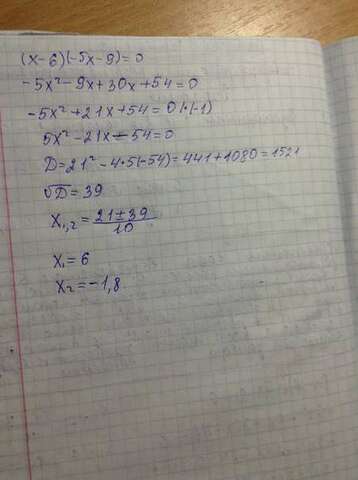 (x-6)(-5x-9)=0
-5x²-9x+30x+54=0
-5x²+21x+54=0|·(-1)
5x²-21x-54=0
D=21²-4·5(-54)=441+1080=1521
√D=39
x₁,₂=21±39/10
x₁=6
x₂=-1,8